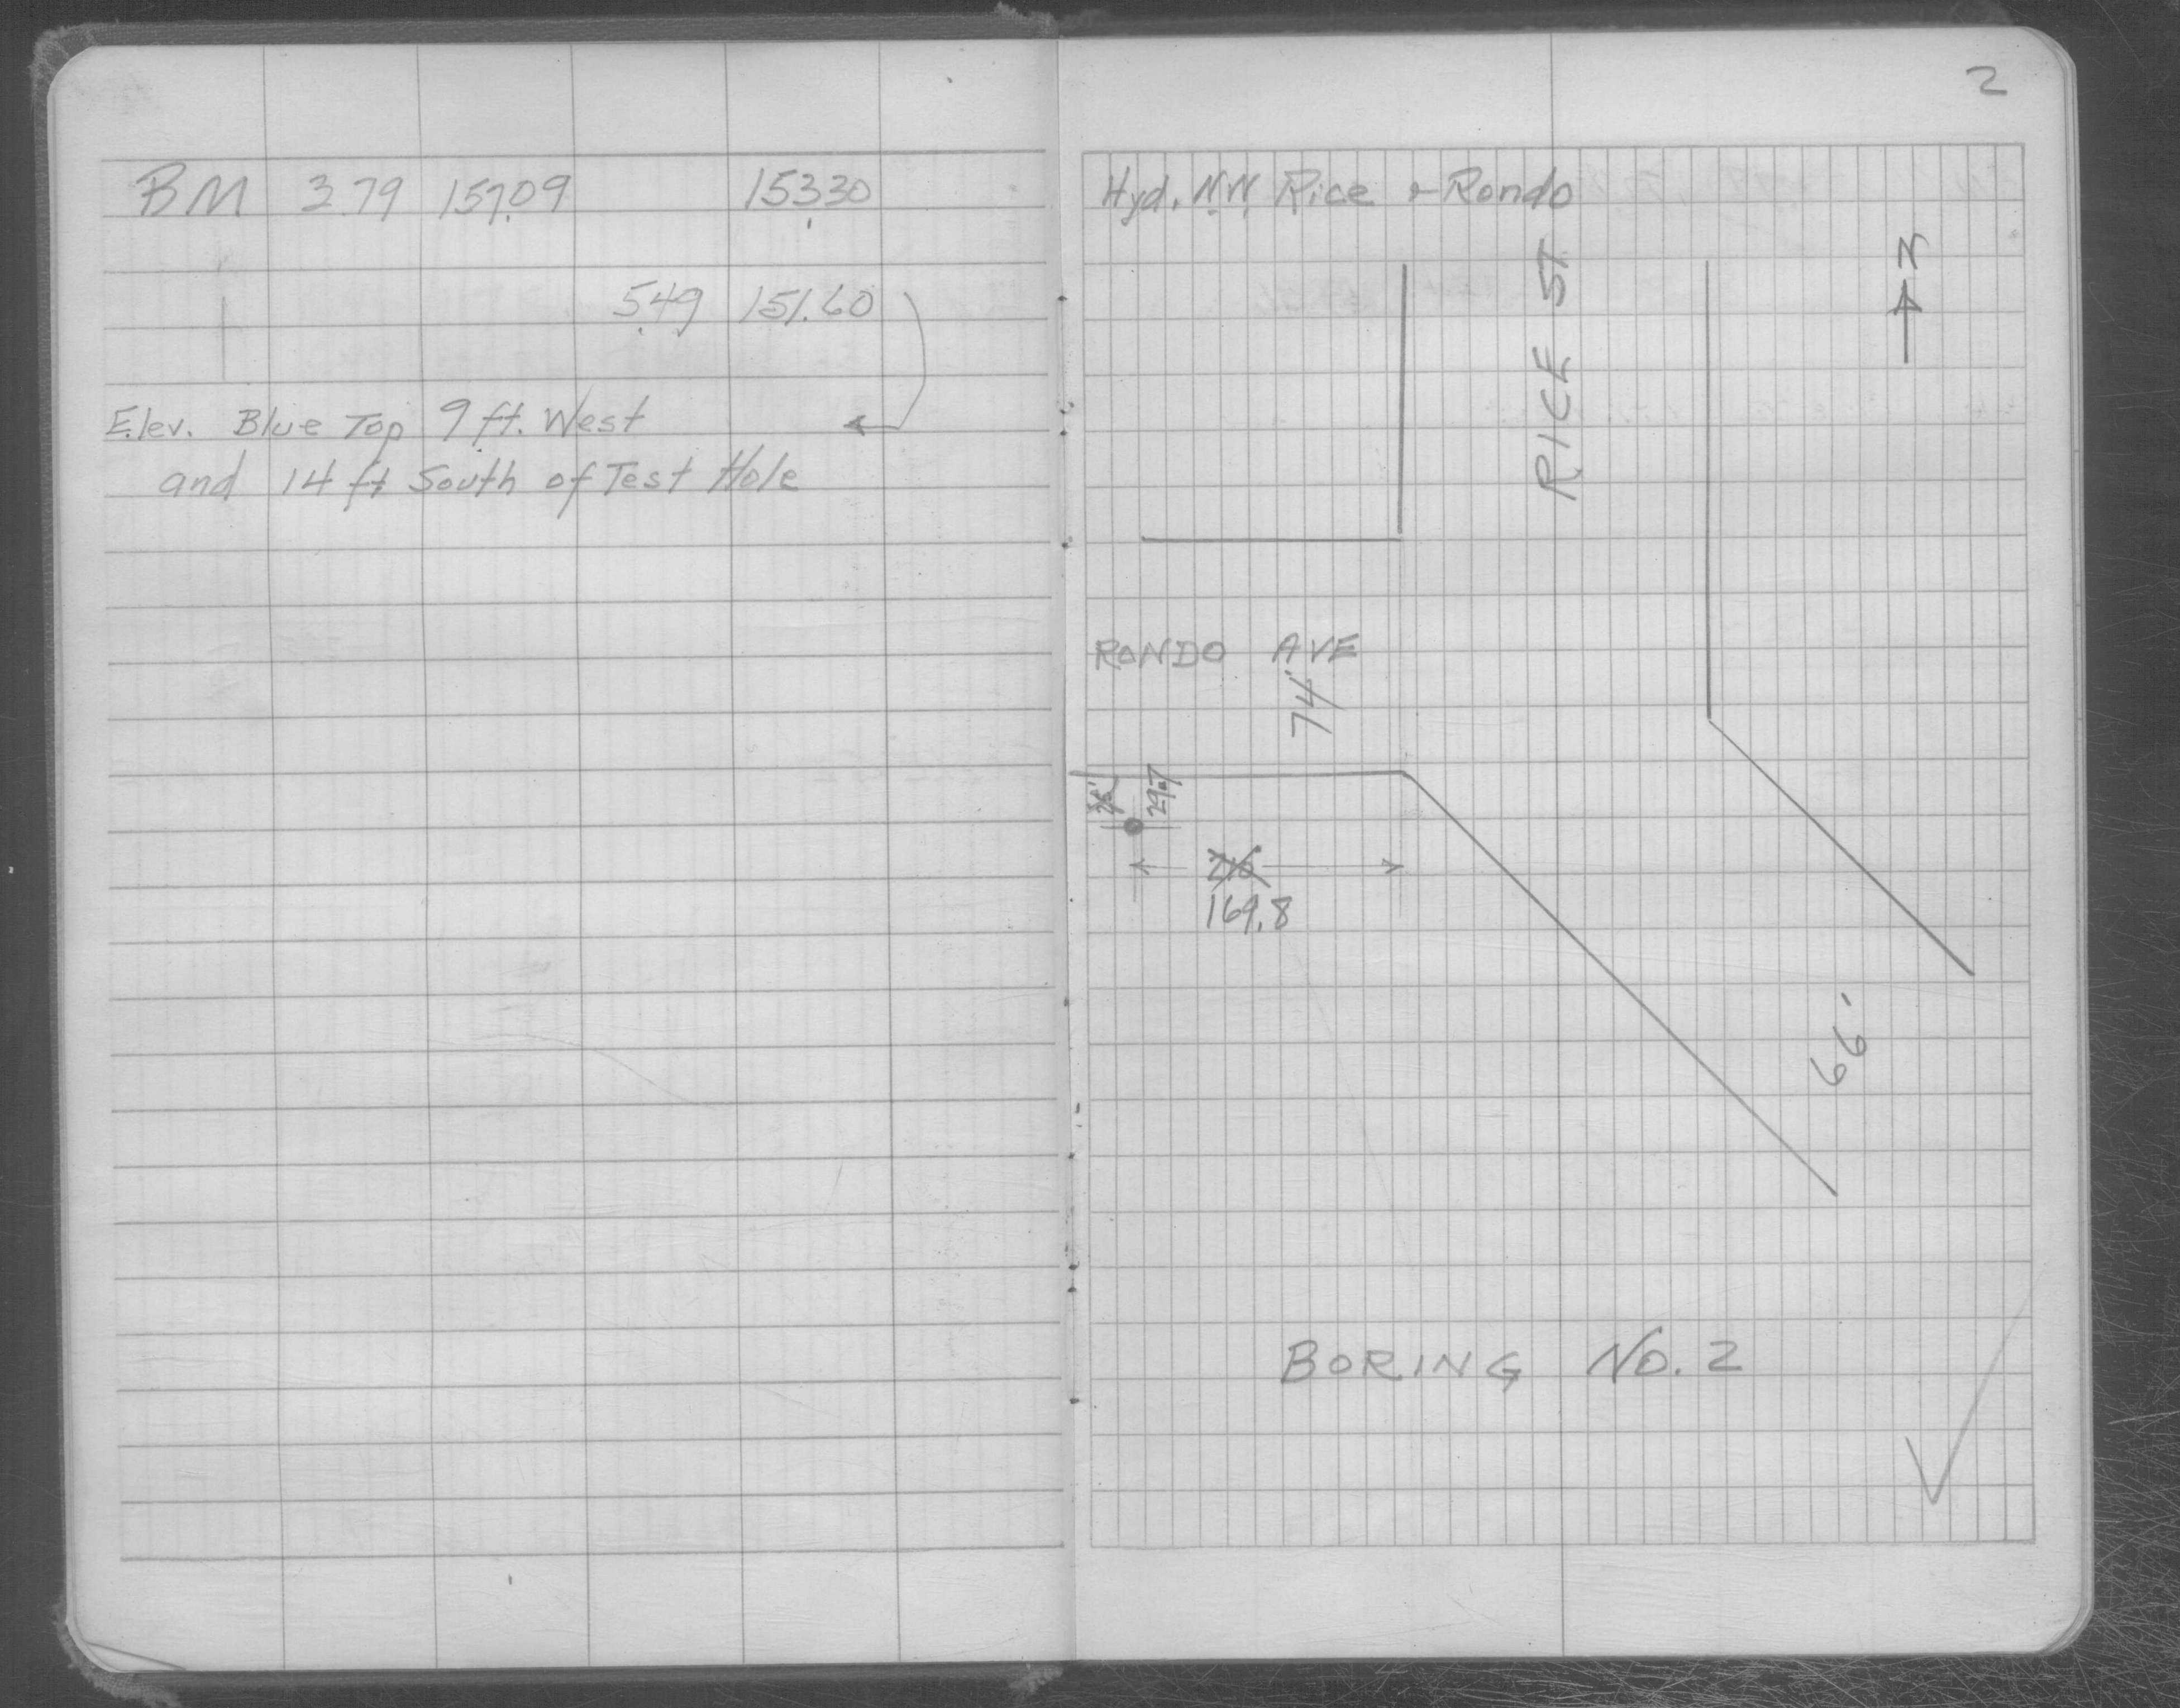 BM 3.79 157.09 153.30
5.49 151.60
Elev. Blue Top 9 ft. West
and 14 ft South of Test Hole
2
Hyd. N.W. Rice & Rondo
N
RICE ST.
RONDO AVE
74'
29.7
210
169.8
66'
BORING NO. 2